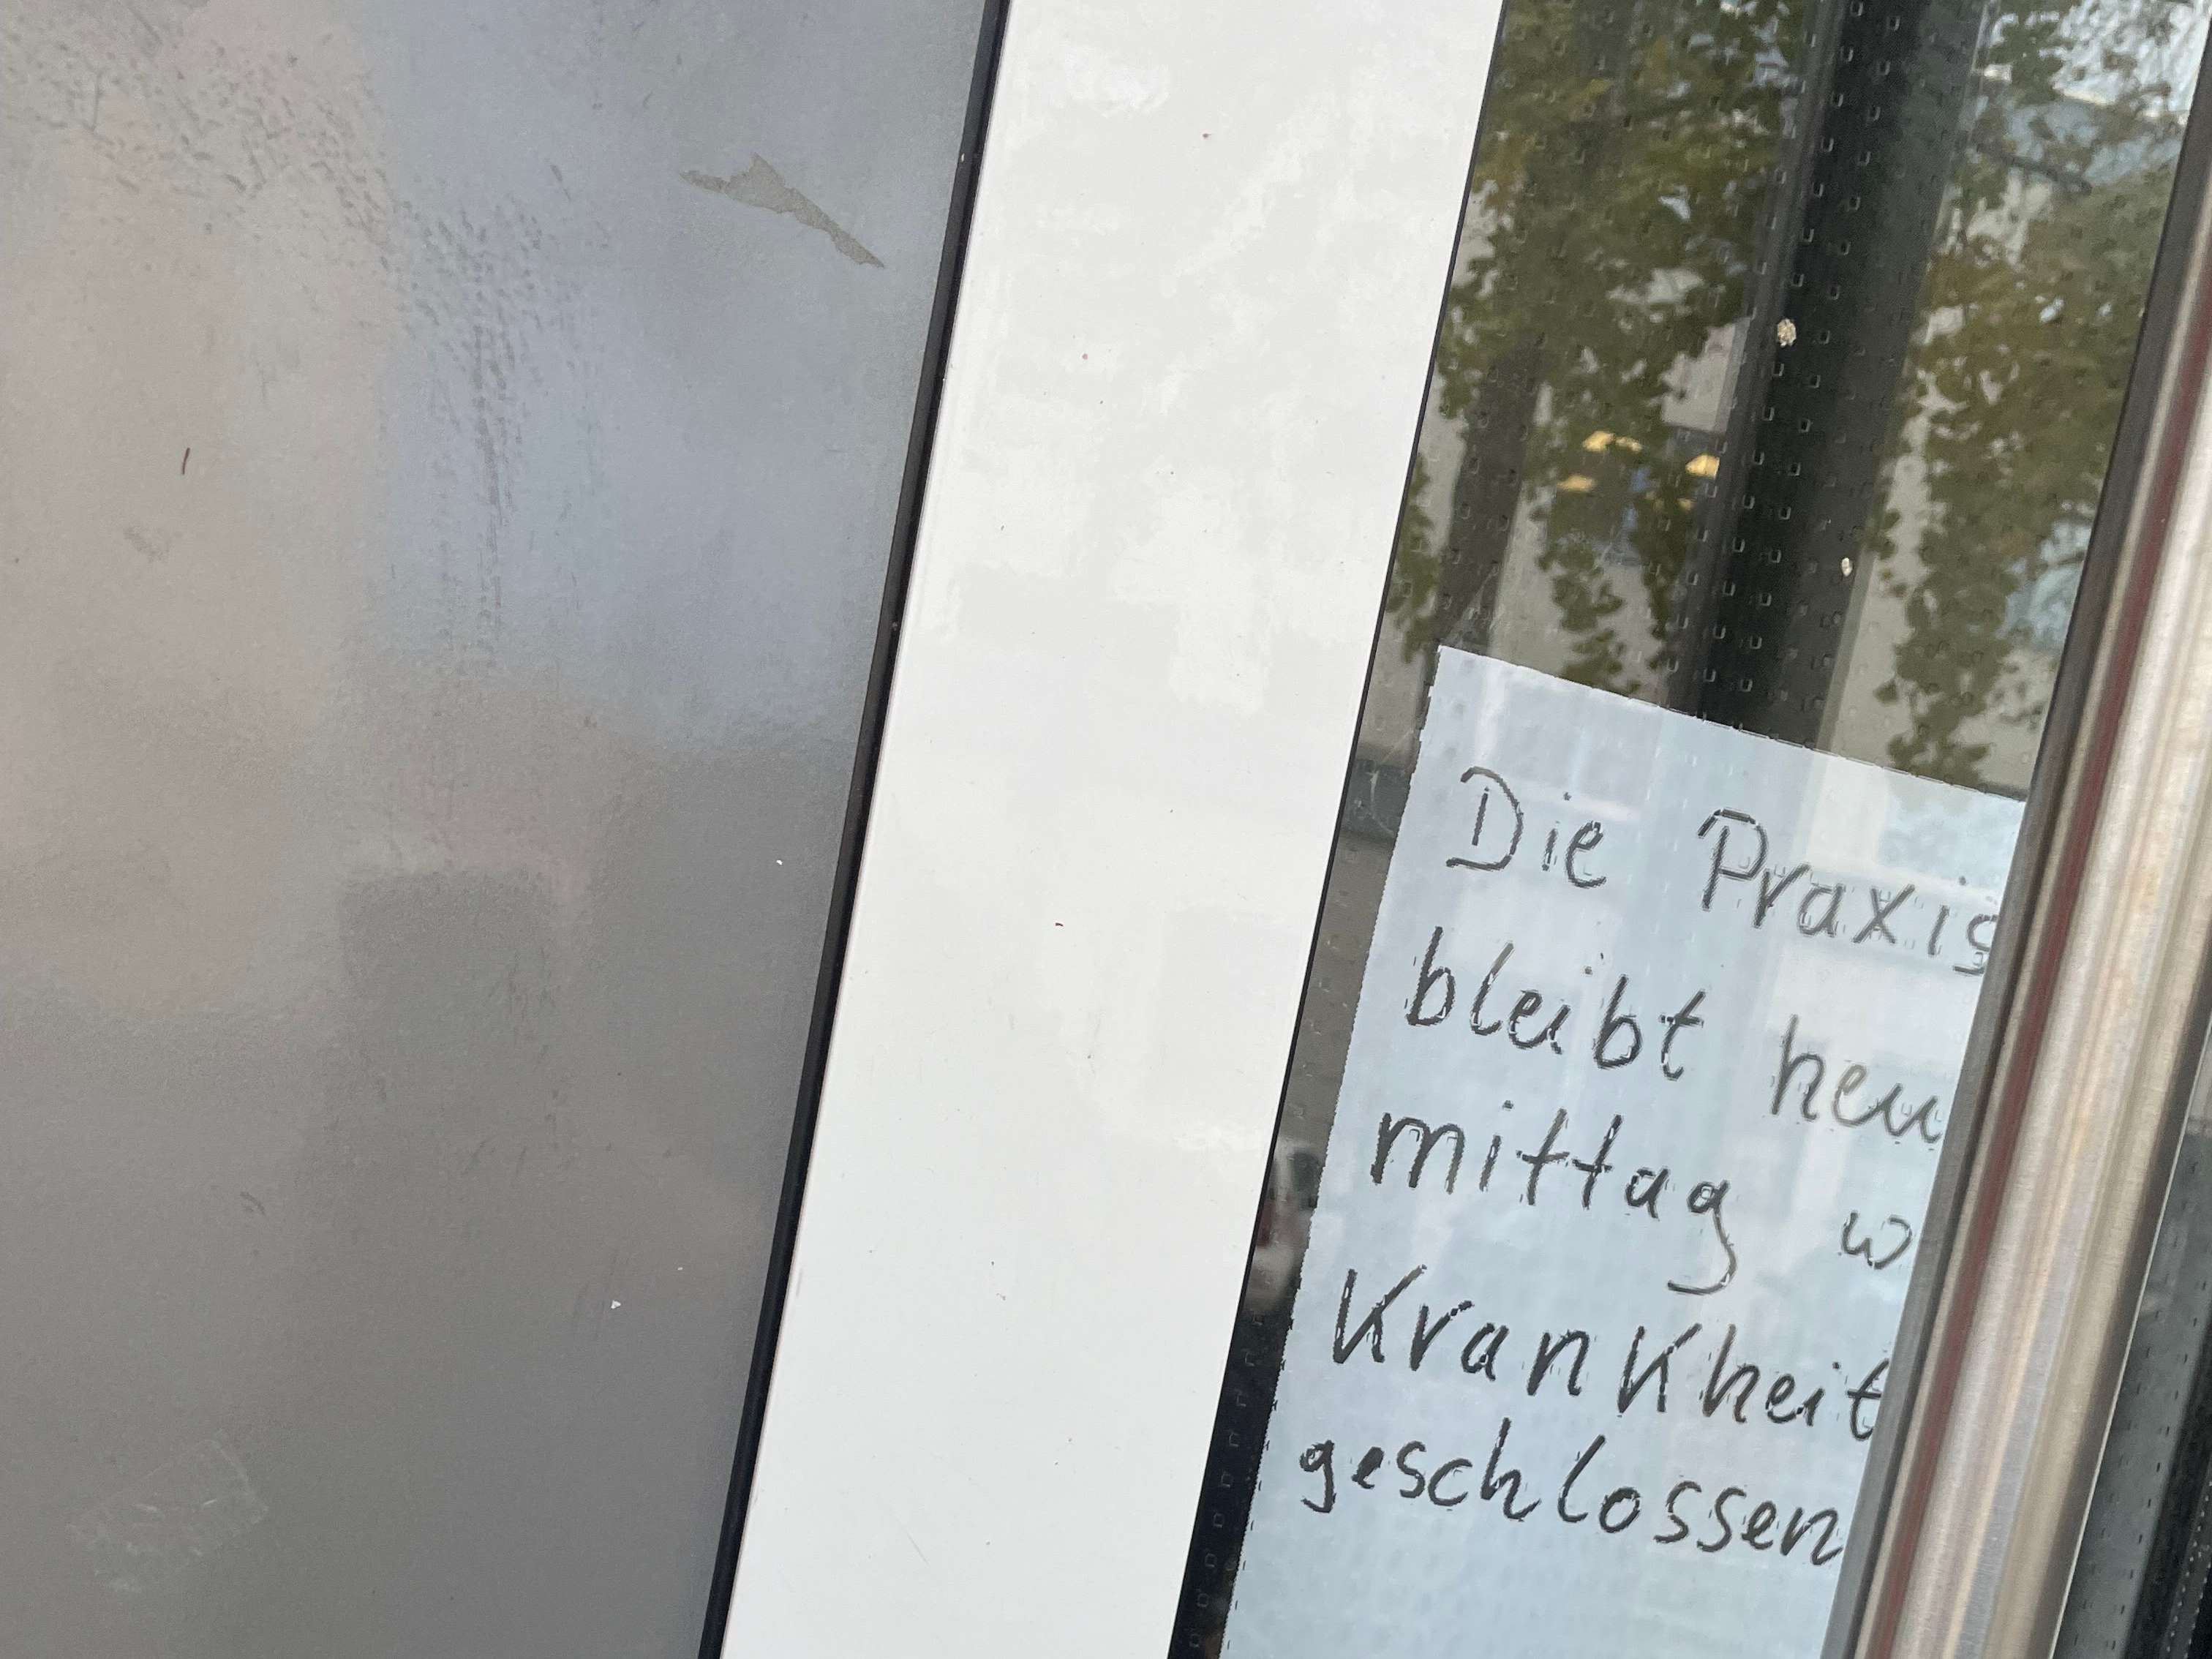 Die Praxis
bleibt heu
mittag w
Krankheit
geschlossen